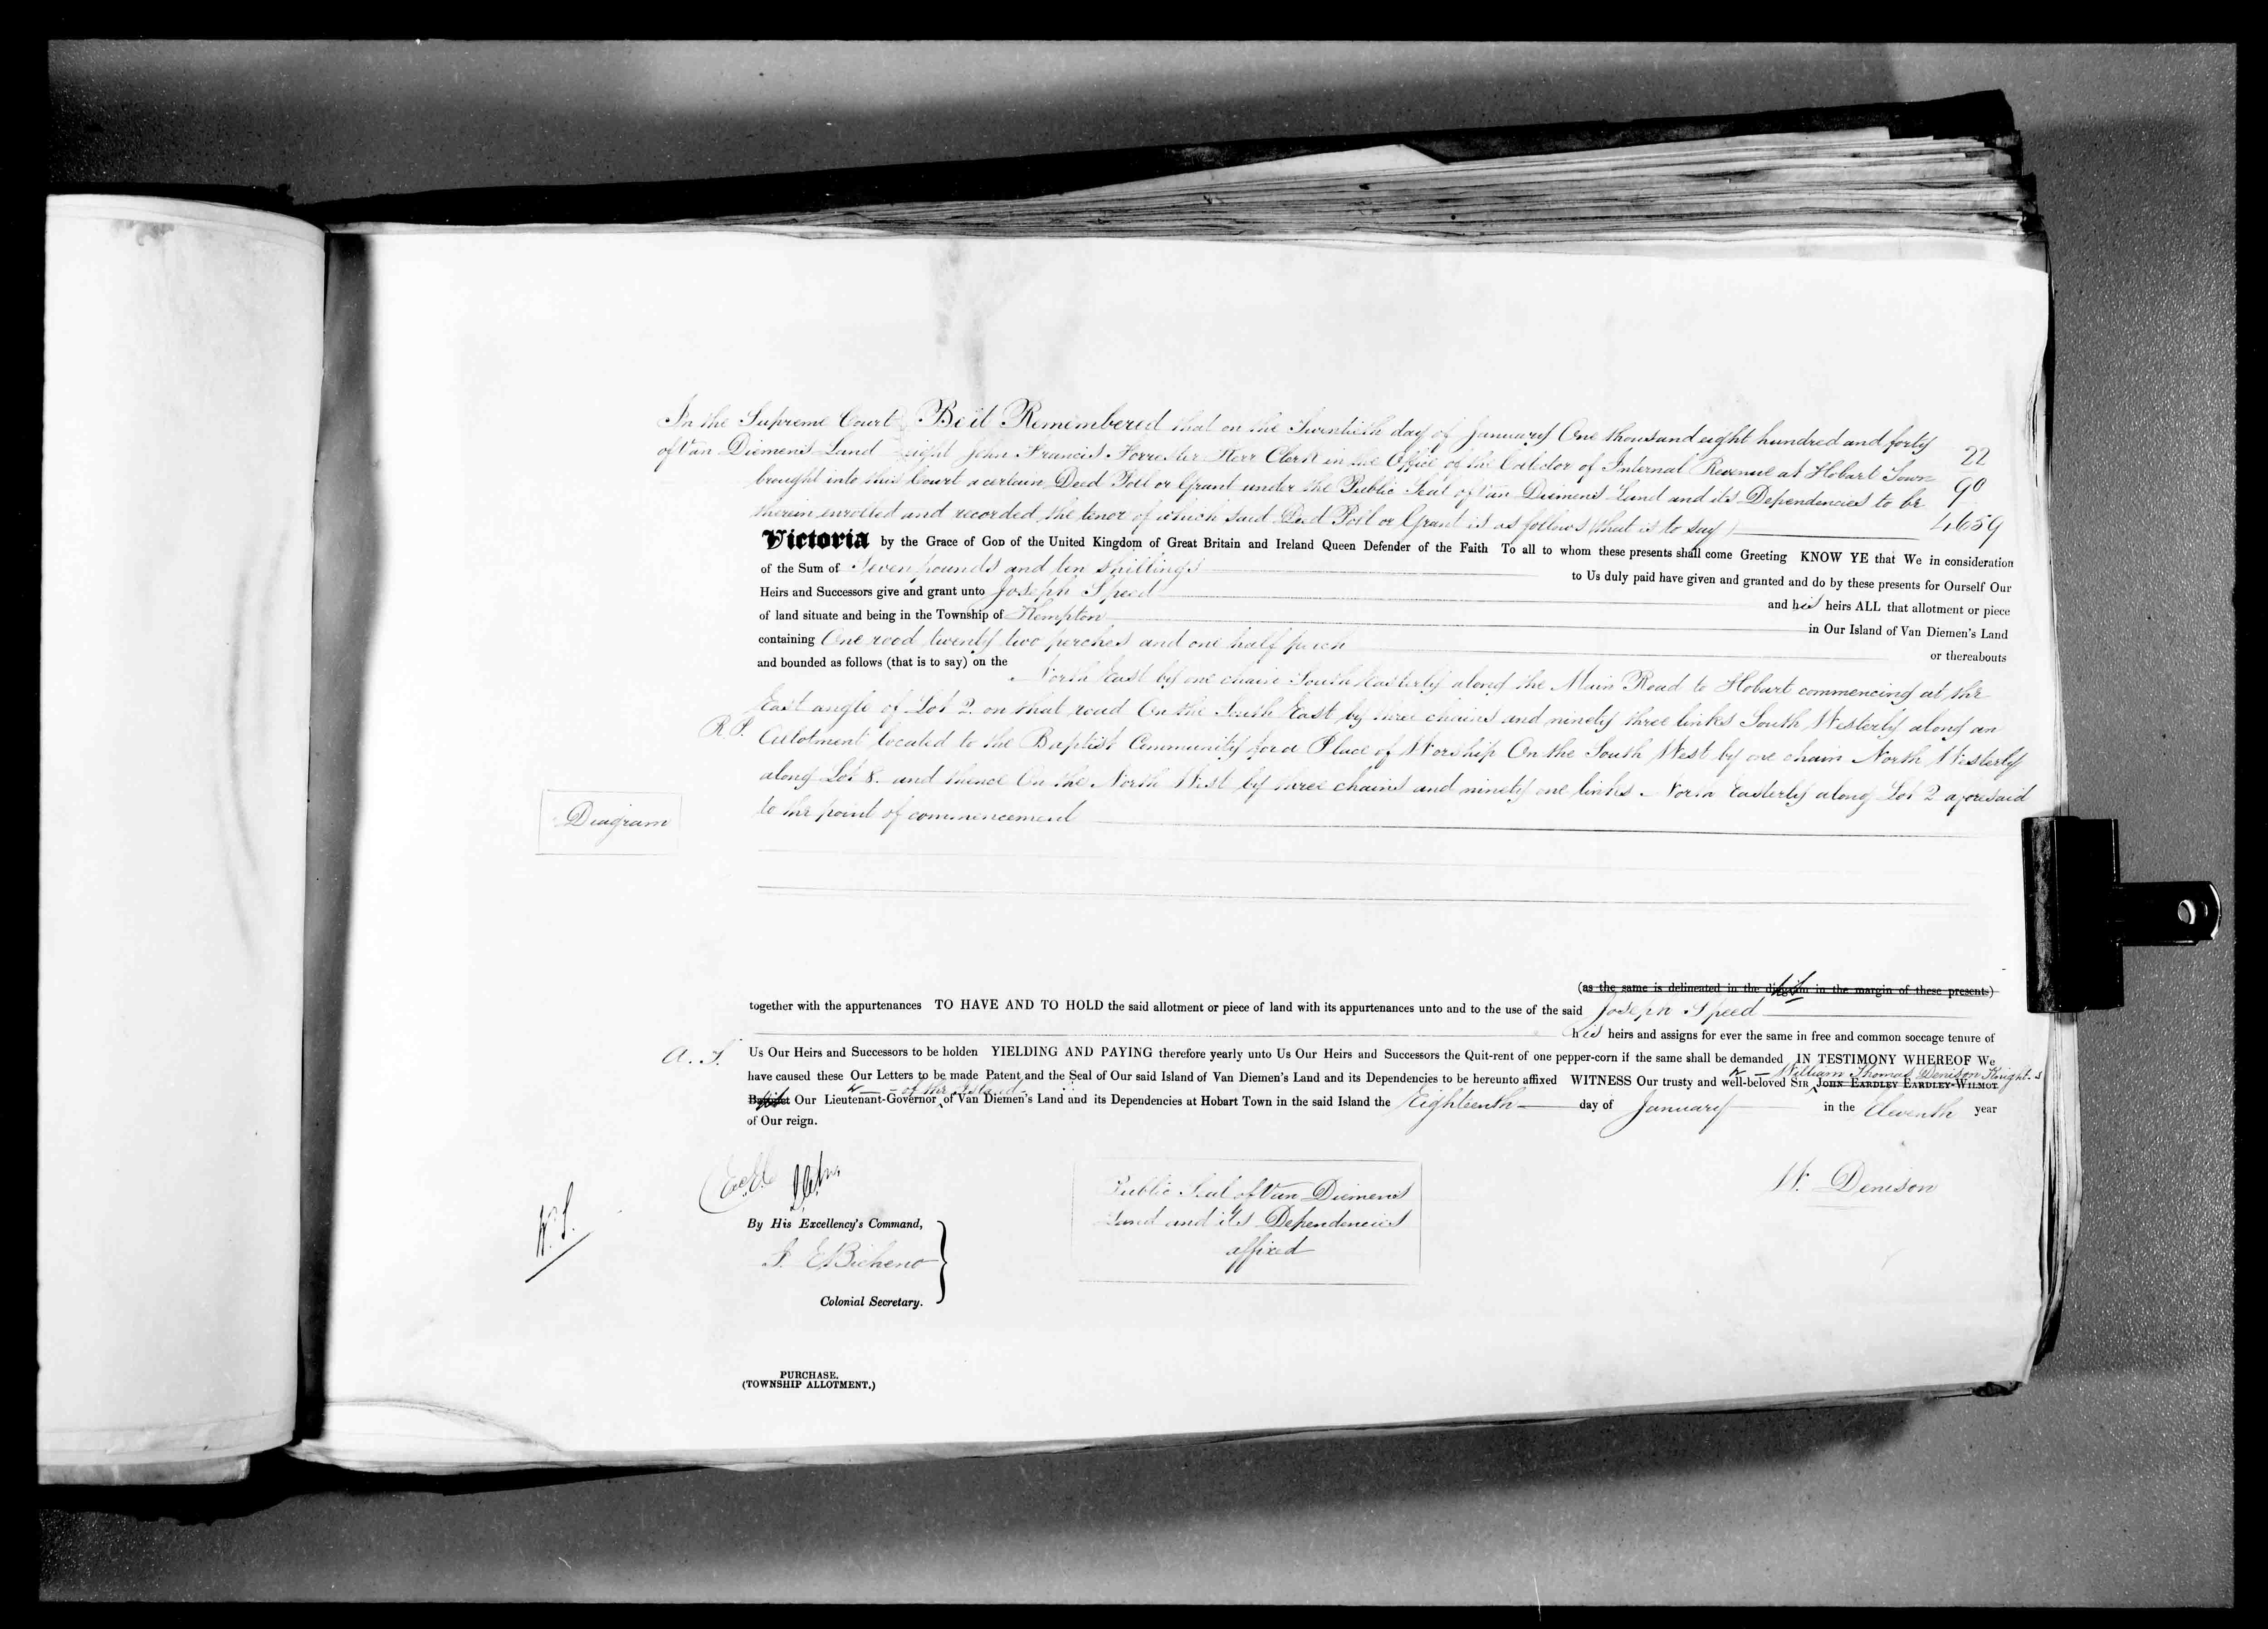 In the Supreme Court Be it Remembered that on the Twentieth day of January One thousand eight hundred and forty
of Van Diemen's Land eight John Francis Forrester Kerr Clerk in the Office of the Collector of Internal Revenue at Hobart Town 22
brought into this Court a certain Deed Poll or Grant under the Public Seal of Van Diemen's Land and its Dependencies to be 90
therein enrolled and recorded the tenor of which said Deed Poll or Grant is as follows (that is to say) 4659
Victoria by the Grace of God of the United Kingdom of Great Britain and Ireland Queen Defender of the Faith To all to whom these presents shall come Greeting KNOW YE that We in consideration
of the Sum of Seven pounds and ten shillings to Us duly paid have given and granted and do by these presents for Ourself Our
Heirs and Successors give and grant unto Joseph Speed and his heirs ALL that allotment or piece
of land situate and being in the Township of Kempton in Our Island of Van Diemen's Land
containing One rood twenty two perches and one half perch or thereabouts
and bounded as follows (that is to say) on the
North East by one chain South Easterly along the Main Road to Hobart commencing at the
East angle of Lot 2 on that road On the South East by three chains and ninety three links South Westerly along an
R.P. Allotment located to the Baptist Community for a Place of Worship On the South West by one chain North Westerly
along Lot 8. and thence On the North West by three chains and ninety one links North Easterly along Lot 2 aforesaid
Diagram
to the point of commencement
(as the same is delineated in the diagram in the margin of these presents)
together with the appurtenances TO HAVE AND TO HOLD the said allotment or piece of land with its appurtenances unto and to the use of the said Joseph Speed
his heirs and assigns for ever the same in free and common soccage tenure of
Us Our Heirs and Successors to be holden YIELDING AND PAYING therefore yearly unto Us Our Heirs and Successors the Quit-rent of one pepper-corn if the same shall be demanded IN TESTIMONY WHEREOF We
William Thomas Denison Knight
have caused these Our Letters to be made Patent and the Seal of Our said Island of Van Diemen's Land and its Dependencies to be hereunto affixed WITNESS Our trusty and well-beloved SIR JOHN EARDLEY EARDLEY-WILMOT
of the Island
Baronet Our Lieutenant-Governor of Van Diemen's Land and its Dependencies at Hobart Town in the said Island the Eighteenth day of January in the Eleventh year
of Our reign.
W. Denison
Public Seal of Van Diemen's
Land and its Dependencies
affixed
By His Excellency's Command,
J. E. Bicheno
Colonial Secretary.
PURCHASE.
(TOWNSHIP ALLOTMENT.)